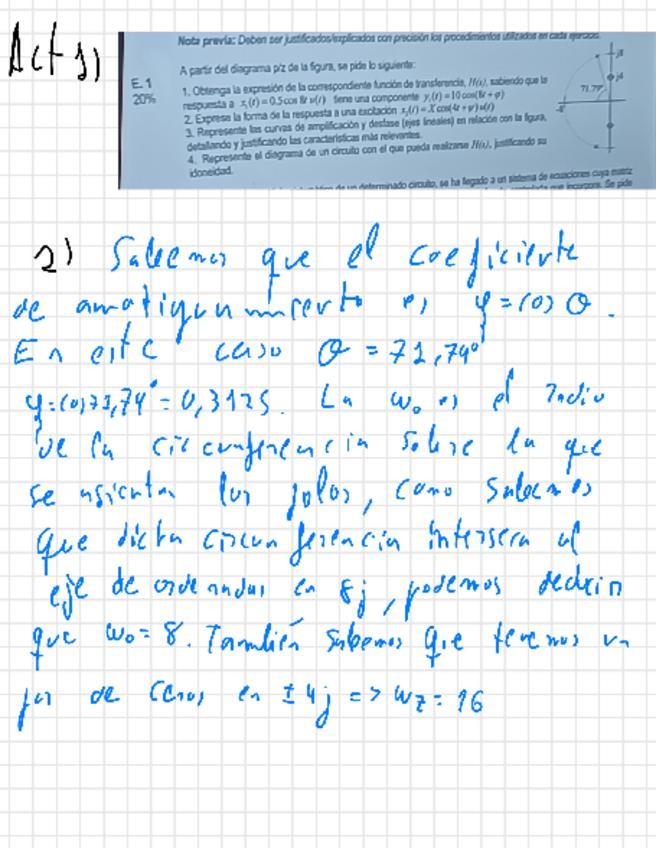 Act 1)
Nota previa: Deben ser justificados/explicados con precisión los procedimientos utilizados en cada ejercicio.
A partir del diagrama p/z de la figura, se pide lo siguiente:
E.1
20%
1. Obtenga la expresión de la correspondiente función de transferencia, H(s), sabiendo que la
respuesta a x₁(t) = 0.5cos 8t u(t) tiene una componente y₁(t) = 10cos(8t + φ)
2. Exprese la forma de la respuesta a una excitación x₂(t) = X cos(4t + ψ) u(t)
3. Represente las curvas de amplificación y desfase (ejes lineales) en relación con la figura,
detallando y justificando las características más relevantes.
4. Represente el diagrama de un circuito con el que pueda realizarse H(s), justificando su
idoneidad.
j8
j4
71.79º
de un determinado circuito, se ha llegado a un sistema de ecuaciones cuya matriz
1) Sabemos que el coeficiente
de amotiguamiento es φ = cos θ.
En este caso θ = 71,79º
φ = cos 71,79º = 0,3125. La ω₀ es el radio
de la circunferencia sobre la que
se asientan los polos, como sabemos
que dicha circunferencia interseca al
eje de ordenadas en 8j, podemos deducir
que ω₀ = 8. También sabemos que tenemos un
par de ceros en ±4j => ωz = 16